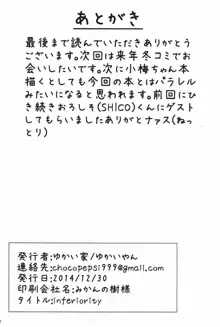 あとがき
最後まで読んでいただきありがとう
ございます。次回は来年冬コミでお
会いしたいです。次に小梅ちゃん本
描くとしても今回の本とはパラレル
みたいになると思われます。前回にひ
き続きおろしそ(SHICO)くんにゲスト
してもらいましたありがとナァス(ねっ
とり)
発行者:ゆかい家/ゆかいやん
連絡先:chocopepsi999@gmail.com
発行日:2014/12/30
印刷会社:みかんの樹様
タイトル:inferiority